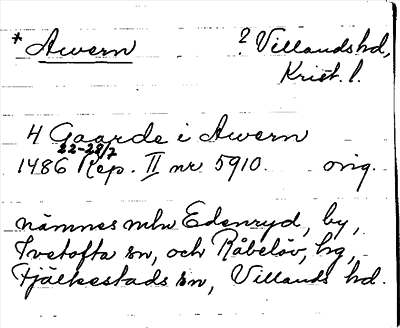 * Awern
? Villands hd,
Krist. l.
4 Gaarde i Awern
22-28/7
1486 Rep. II nr 5910. orig.
nämnes mhv Edenryd, by,
Ivetofta sn, och Råbelöv, hg,
Fjälkestads sn, Villands hd.